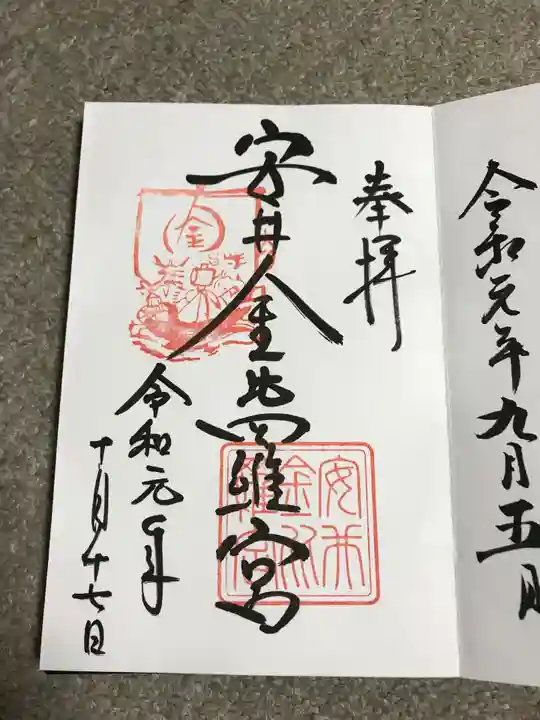 令和元年九月五日
奉拝
安井金比羅宮
令和元年
十月十七日
金
安井金比羅宮